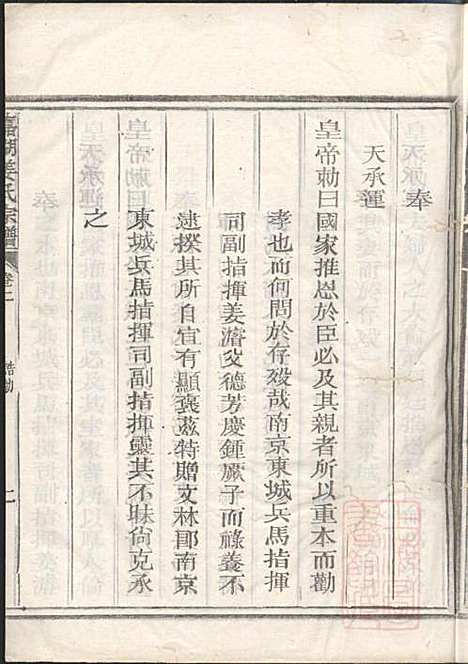 奉
天承運
皇帝勅曰國家推恩於臣必及其親者所以重本而勸
孝也而何間於存歿哉南京東城兵馬指揮
司副指揮姜濬父德芳慶鍾厥子而祿養不
逮揆其所自宜有顯褒兹特贈文林郎南京
東城兵馬指揮司副指揮靈其不昧尚克承
之
姜氏宗譜
卷二
誥勅
二